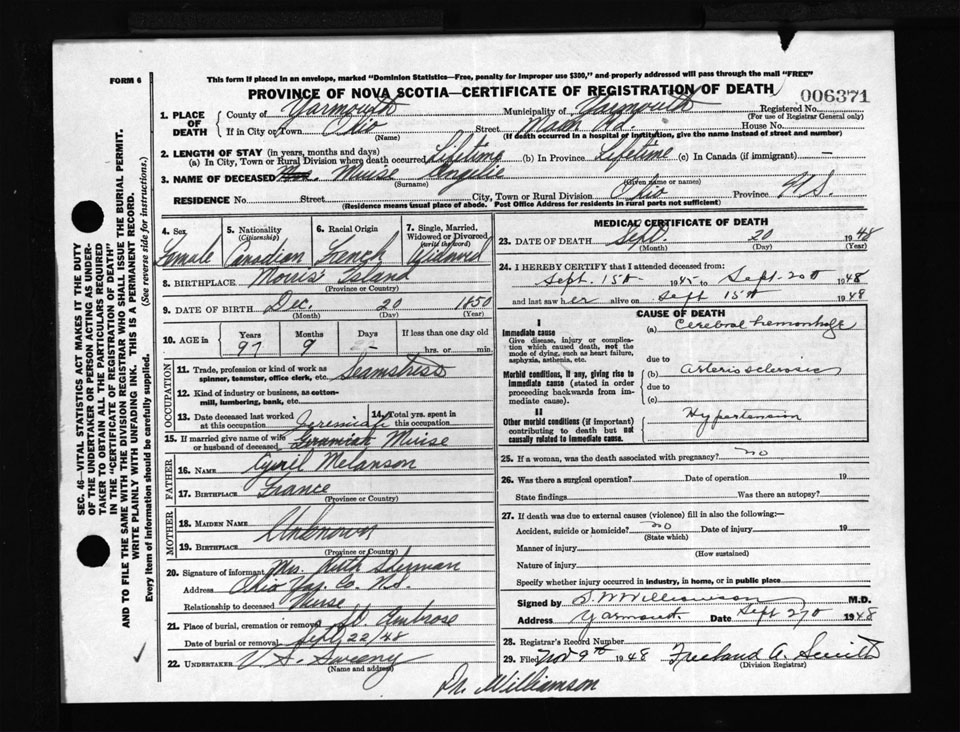 FORM 6
This form if placed in an envelope, marked "Dominion Statistics—Free, penalty for improper use $300," and properly addressed will pass through the mail "FREE"
PROVINCE OF NOVA SCOTIA—CERTIFICATE OF REGISTRATION OF DEATH
006371
1. PLACE OF DEATH
County of Yarmouth Municipality of Yarmouth Registered No.
(For use of Registrar General only)
If in City or Town Ohio Street Main Rd. House No.
(Name) (If death occurred in a hospital or institution, give the name instead of street and number)
2. LENGTH OF STAY (in years, months and days)
(a) In City, Town or Rural Division where death occurred Lifetime (b) In Province Lifetime (c) In Canada (if immigrant) —
3. NAME OF DECEASED Mrs. Muise Angelie
(Surname) (Given name or names)
RESIDENCE No. Street City, Town or Rural Division Ohio Province N.S.
(Residence means usual place of abode. Post Office Address for residents in rural parts not sufficient)
4. Sex Female
5. Nationality (Citizenship) Canadian
6. Racial Origin French
7. Single, Married, Widowed or Divorced (write the word) Widowed
8. BIRTHPLACE Morris Island
(Province or Country)
9. DATE OF BIRTH Dec. 20 1850
(Month) (Day) (Year)
10. AGE in Years Months Days If less than one day old
97 9 — hrs. or min.
OCCUPATION
11. Trade, profession or kind of work as spinner, teamster, office clerk, etc. Seamstress
12. Kind of industry or business, as cotton-mill, lumbering, bank, etc.
13. Date deceased last worked at this occupation
14. Total yrs. spent in this occupation
Jeremiah
15. If married give name of wife or husband of deceased Jeremiah Muise
FATHER
16. NAME Cyril Melanson
17. BIRTHPLACE France
(Province or Country)
MOTHER
18. MAIDEN NAME Unknown
19. BIRTHPLACE
(Province or Country)
20. Signature of informant Mrs. Ruth Sherman
Address Ohio Yar. Co. N.S.
Relationship to deceased Nurse
21. Place of burial, cremation or removal St. Ambrose
Date of burial or removal Sept. 22/48
22. UNDERTAKER V. S. Sweeny
(Name and address)
MEDICAL CERTIFICATE OF DEATH
23. DATE OF DEATH Sept. 20 1948
(Month) (Day) (Year)
24. I HEREBY CERTIFY that I attended deceased from:
Sept. 15th 1945 to Sept. 20th 1948
and last saw her alive on Sept 15th 1948
CAUSE OF DEATH
I
Immediate cause
Give disease, injury or complication which caused death, not the mode of dying, such as heart failure, asphyxia, asthenia, etc.
(a) Cerebral hemorrhage
due to
Morbid conditions, if any, giving rise to immediate cause (stated in order proceeding backwards from immediate cause).
(b) Arterio sclerosis
due to
(c)
II
Other morbid conditions (if important) contributing to death but not causally related to immediate cause.
Hypertension
25. If a woman, was the death associated with pregnancy? no
26. Was there a surgical operation? Date of operation 19
State findings Was there an autopsy?
27. If death was due to external causes (violence) fill in also the following:—
Accident, suicide or homicide? no Date of injury 19
(State which)
Manner of injury
(How sustained)
Nature of injury
Specify whether injury occurred in industry, in home, or in public place
Signed by S. W. Williamson M.D.
Address Yarmouth Date Sept 27th 1948
28. Registrar's Record Number
29. Filed Nov 9th 1948 Freeland A. Smith
(Division Registrar)
Dr. Williamson
SEC. 46—VITAL STATISTICS ACT MAKES IT THE DUTY
OF THE UNDERTAKER OR PERSON ACTING AS UNDER-
TAKER TO OBTAIN ALL THE PARTICULARS REQUIRED
IN THE "CERTIFICATE OF REGISTRATION OF DEATH"
AND TO FILE THE SAME WITH THE DIVISION REGISTRAR WHO SHALL ISSUE THE BURIAL PERMIT.
WRITE PLAINLY WITH UNFADING INK. THIS IS A PERMANENT RECORD.
Every item of information should be carefully supplied. (See reverse side for instructions.)